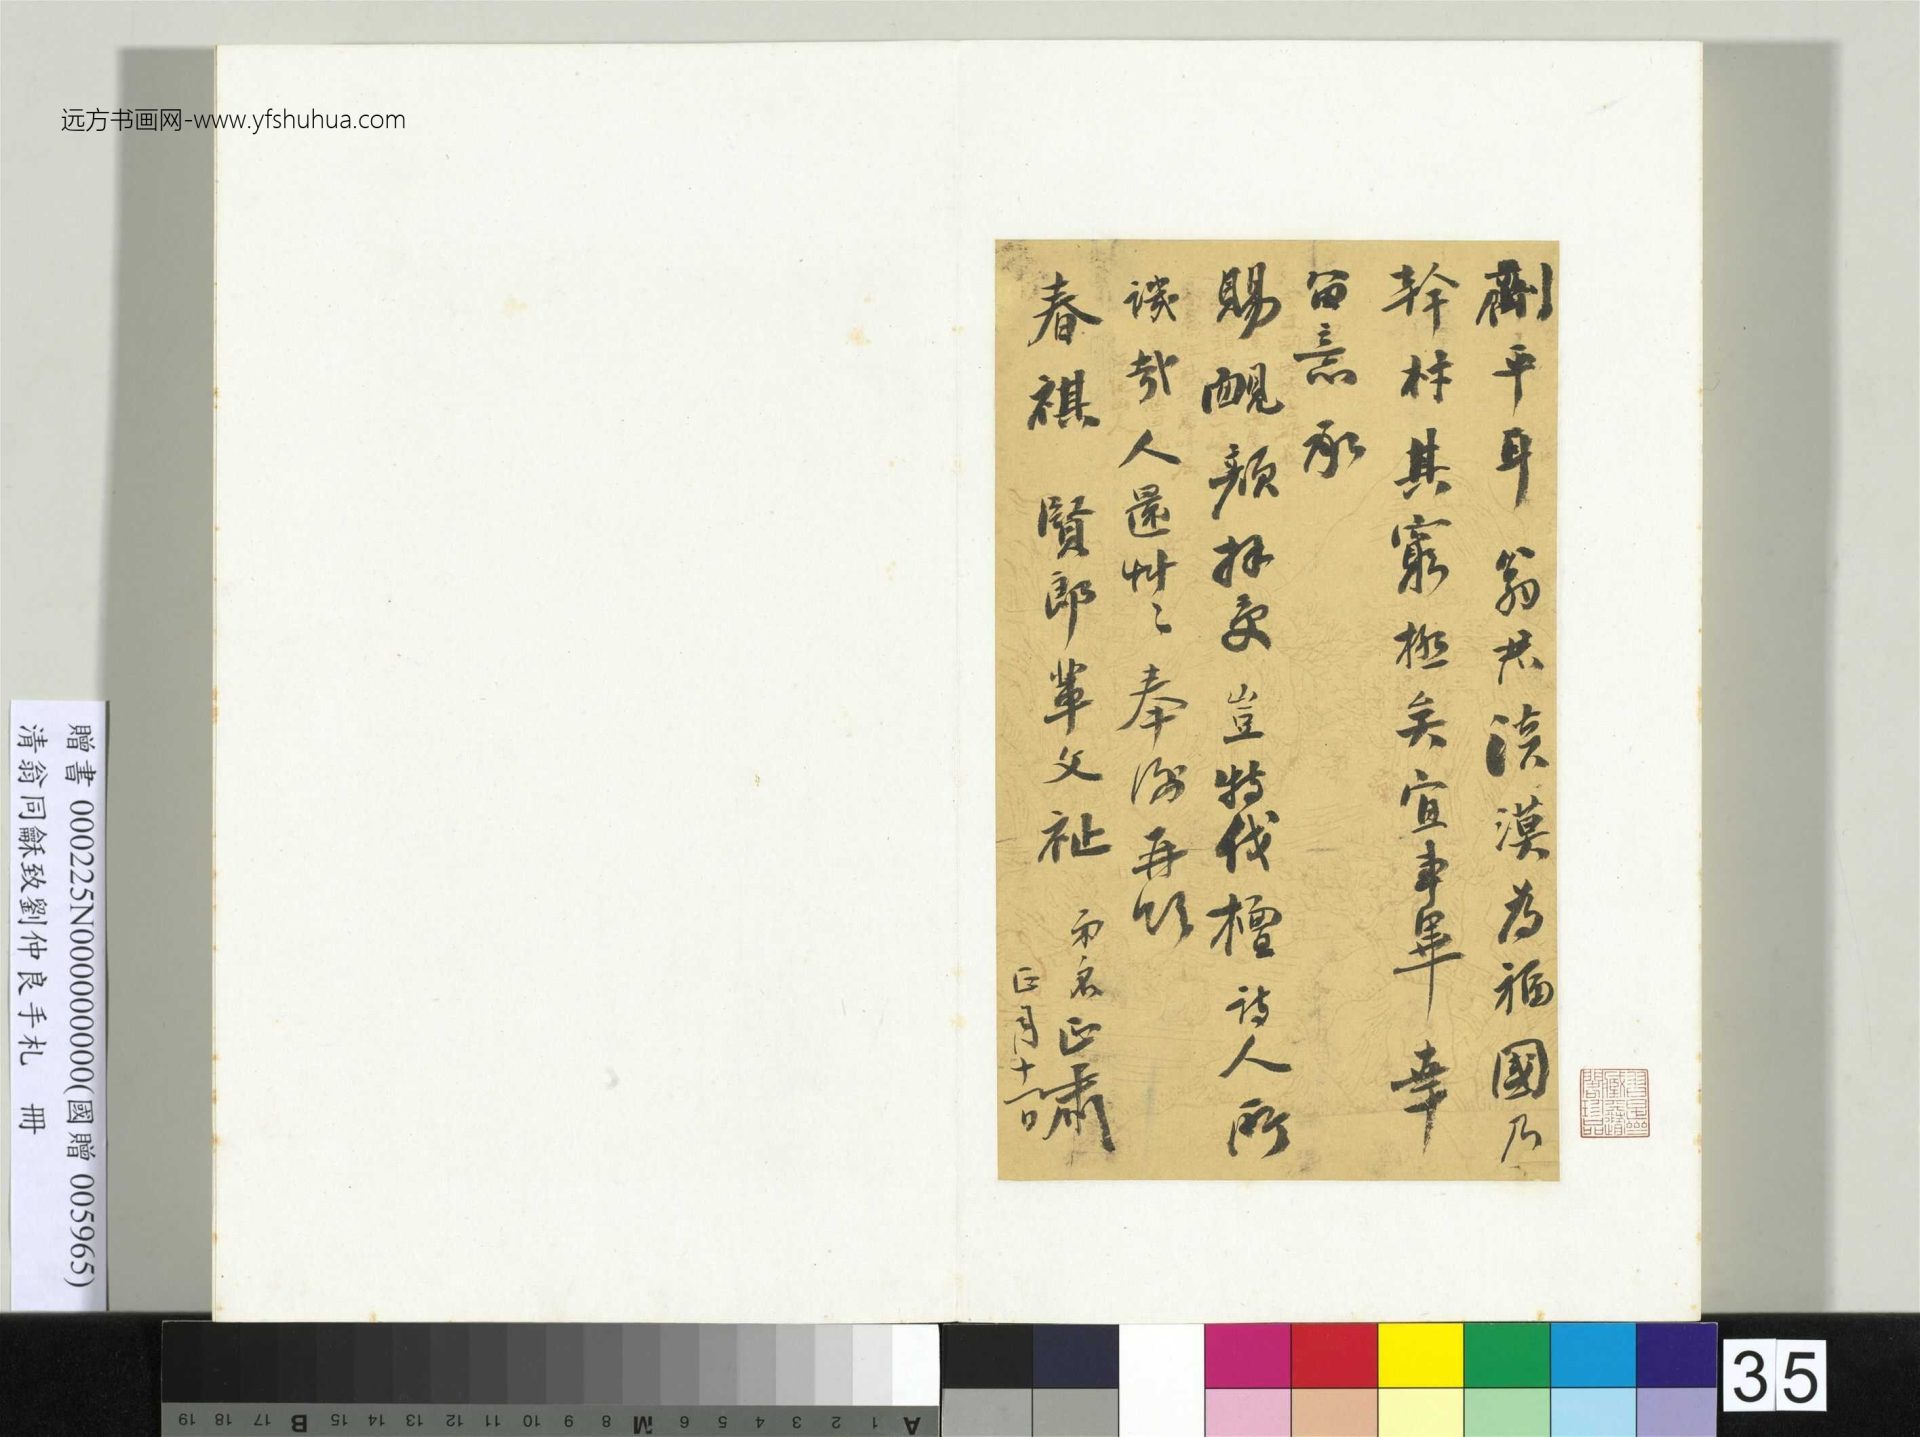 远方书画网-www.yfshuhua.com
平耳 翁君淡漠為福國乃
幹材其窮極矣宜事畢 幸
留意承
賜靦顏拜受豈特伐檀詩人所
譏哉人還艸〻奉谢再頌
春祺 賢郎輩文祉 兩宥正肅
正月十一日
贈書 000225N000000000(國贈 005965)
清翁同龢致劉仲良手札 冊
35
A 1 2 3 4 5 6 M 8 9 10 11 12 13 14 15 B 17 18 19